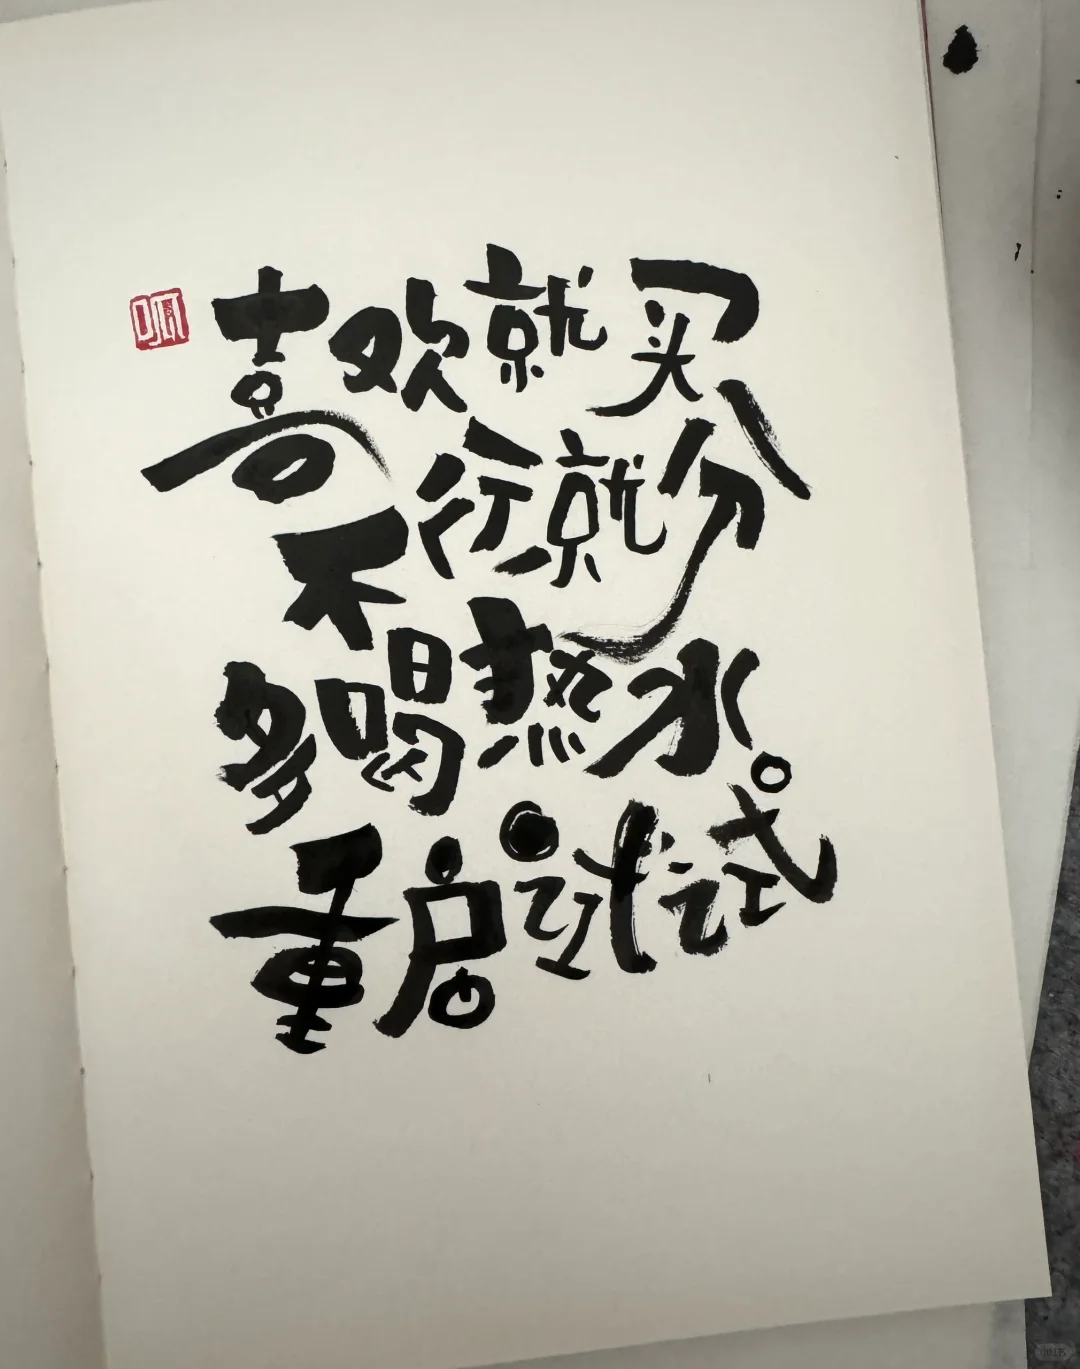 喜欢就买
不行就分
多喝热水。
重启试试